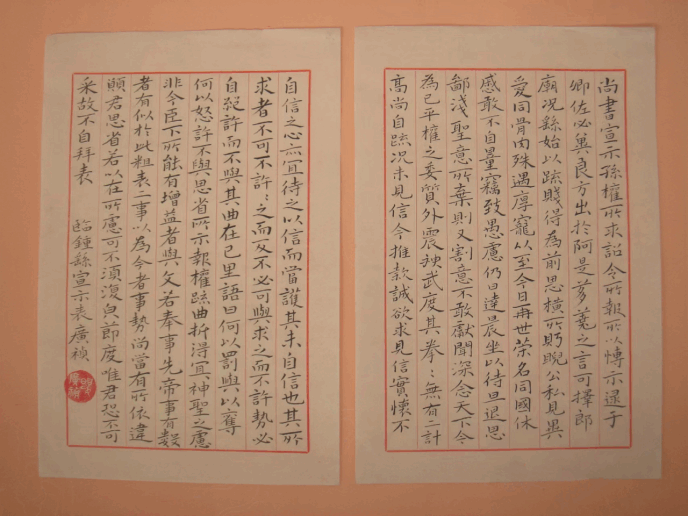 尚書宣示孫權所求詔令所報所以博示逮于
卿佐必冀良方出於阿是芻蕘之言可擇郎
廟況繇始以疏賤得為前恩橫所眄睨公私見異
愛同骨肉殊遇厚寵以至今日再世榮名同國休
慼敢不自量竊致愚慮仍日達晨坐以待旦退思
鄙淺聖意所棄則又割意不敢獻聞深念天下今
為已平權之委質外震神武度其拳:無有二計
高尚自疏況未見信今推款誠欲求見信實懷不
自信之心亦宜待之以信而當護其未自信也其所
求者不可不許:之而反不必可與求之而不許勢必
自絕許而不與其曲在己里語曰何以罰與以奪
何以怒許不與思省所示報權疏曲折得宜神聖之慮
非今臣下所能有增益昔與文若奉事先帝事有數
者有似於此粗表二事以為今者事勢尚當有所依違
願君思省若以在所慮可不須復皃節度唯君恐不可
采故不自拜表
臨鍾繇宣示表廣禎